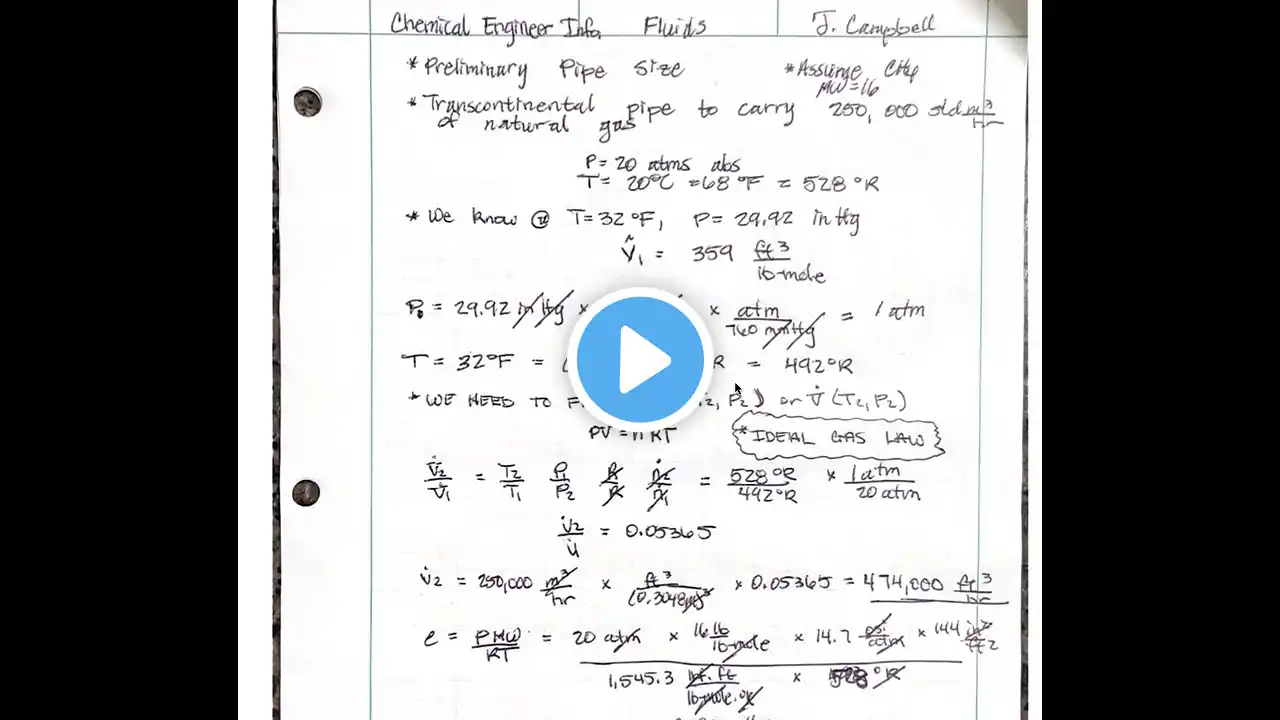 Chemical Engineer Info. Fluids J. Campbell
* Preliminary Pipe Size * Assume CH4
MW=16
* Transcontinental pipe to carry 250,000 std m³/hr
of natural gas
P= 20 atms abs
T= 20°C =68°F = 528°R
* We know @ T=32°F, P= 29.92 in Hg
V̂₁ = 359 ft³/lb-mole
P₀ = 29.92 in Hg × × atm/760 mmHg = 1 atm
T= 32°F = R = 492°R
* WE NEED TO P₂) or V̇ (T₂, P₂)
PV = nRT * IDEAL GAS LAW
V̇₂/V̇₁ = T₂/T₁ P₁/P₂ R/R ṅ₂/ṅ₁ = 528°R/492°R × 1 atm/20 atm
V̇₂/V̇₁ = 0.05365
V̇₂ = 250,000 m³/hr × ft³/(0.3048m)³ × 0.05365 = 474,000 ft³/hr
ρ = PMW/RT = 20 atm × 16 lb/lb-mole × 14.7 psi/atm × 144 in²/ft²
1,545.3 lbf.ft/lb-mole.°R × 528°R